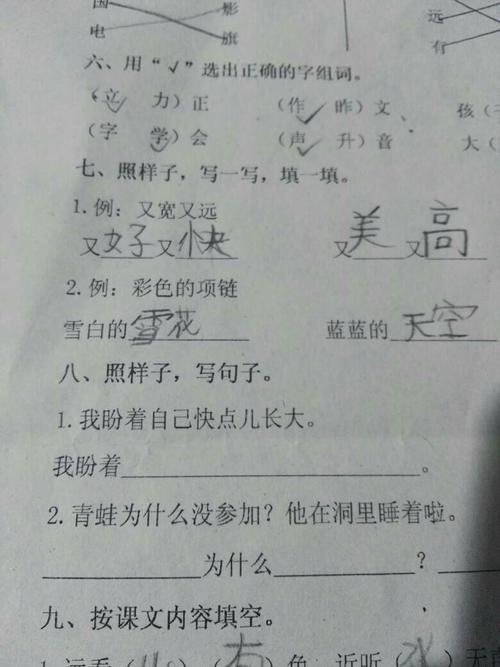 国 影
电 旗
远
有
六、用“√”选出正确的字组词。
（立 力）正 （作 昨）文、 孩（
（字 学）会 （声 升）音 大（
七、照样子，写一写，填一填。
1.例：又宽又远
又好又快 又美又高
2.例：彩色的项链
雪白的雪花 蓝蓝的天空
八、照样子，写句子。
1.我盼着自己快点儿长大。
我盼着____________。
2.青蛙为什么没参加？他在洞里睡着啦。
______为什么______？____
九、按课文内容填空。
1.远看（山）（有）色，近听（水）